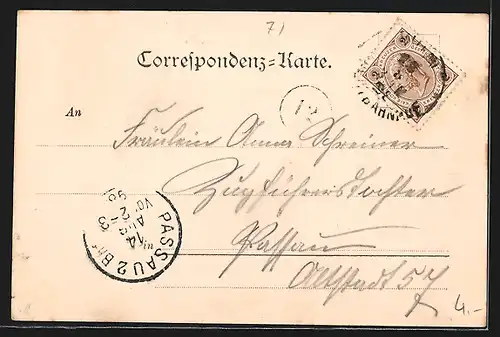 71
Correspondenz-Karte.
An
12
BAHNHOF
Fräulein Anna Schreiner
Zugführerstochter
Passau
Altstadt 57
PASSAU 2 Bhf
14
Aug
Vor 2-3
98
4.-